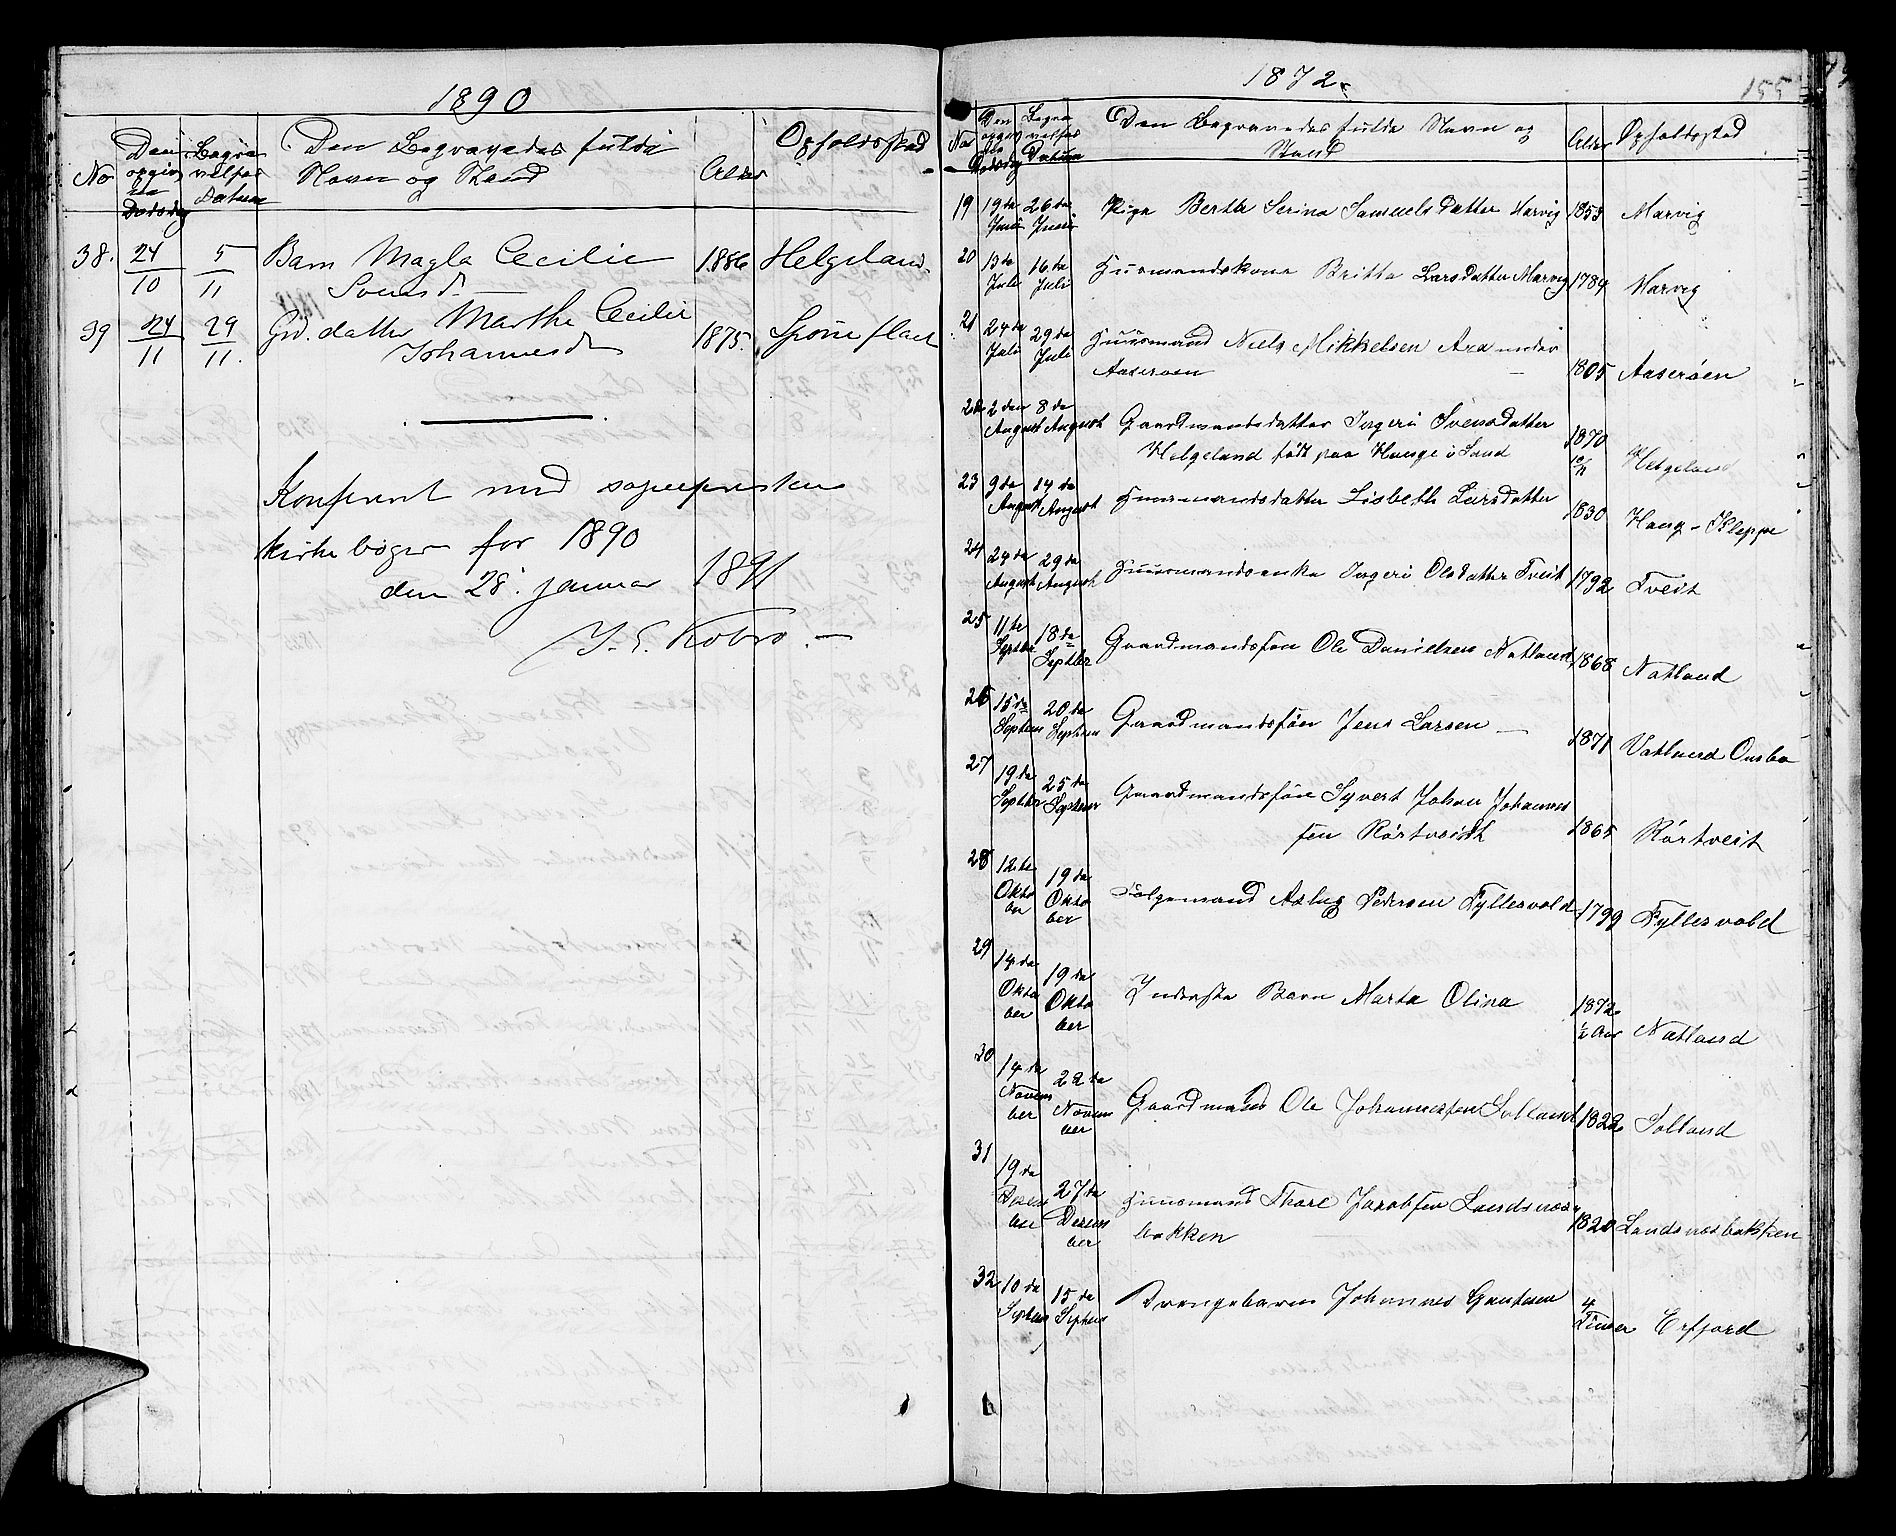 1890
No
Den opgivne Dødsdag
Begravelses Datum
Den Begravedes fulde Navn og Stand
Alder
Opholdssted
38. 24/10 5/11 Barn Magla Cecilie 1886 Helgeland
Svensd.
39 24/11 29/11. Gd. datter Marthe Cecilie 1875. 
Johannesd
Konferert med sogneprestens
kirkebøger for 1890
den 28. januar 1891
J. E. Kobro.
1872.
155
No
Den opgivne Dødsdag
Begravelses Datum
Den Begravedes fulde Navn og Stand
Alder
Opholdssted
19 19de Juni 26de Juni Pige Berthe Serina Samuelsdatter Marvig 1853 Marvig
20 13de Juli 16de Juli Huusmandskone Britta Larsdatter Marvig 1789 Marvig
21 24de Juli 29de Juli Huusmand Niels Mikkelsen Ara under
Aaserøen 1805 Aaserøen
22 2den August 8de August Gaardmandsdatter Ingeri Svensdatter
Helgeland født paa Hauge i Sand 1870 Helgeland
23 9de August 14de August Huusmandsdatter Lisbeth Larsdatter 1830 Haug-Kleppe
24 24de August 29de August Huusmandsenke Ingeri Olsdatter Tveit 1792 Tveit
25 11te Septbr 18de Septbr Gaardmandssøn Ole Danielsen Natland 1868 Natland
26 15de Septem 20de Septem Gaardmandssøn Jens Larsen 1871 Vatland Ousbo
27 19de Septbr 25de Septbr Gaardmandssøn Syvert Johan Johannes
sen Rørtveidt 1865 Rørtveit
28 12te Oktober 19de Oktober Folgemand Aslag Pedersen Fyllesvold 1799 Fyllesvold
29 14de Oktober 19de Oktober Inderste Barn Marta Olina 1872 ½ Aar Natland
30 14de November 22de November Gaardmand Ole Johannessen Solland 1822 Solland
31 19de Desember 27de Desember Huusmand Thore Jacobsen Landsnæs
bakken 1820 Landsnæsbakken
32 10de Septem 15de Septem Drengebarn Johannes Gautesen 4 Timer Erfjord